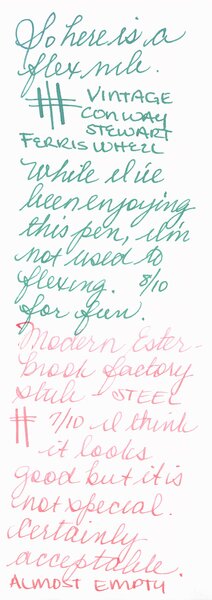 So here is a
flex nib.
VINTAGE
CONWAY
STEWART
FERRIS WHEEL
While I've
been enjoying
this pen, I'm
not used to
flexing. 8/10
for fun.
Modern Ester-
brook factory
stub - STEEL
7/10 I think
it looks
good but it is
not special.
Certainly
acceptable.
ALMOST EMPTY